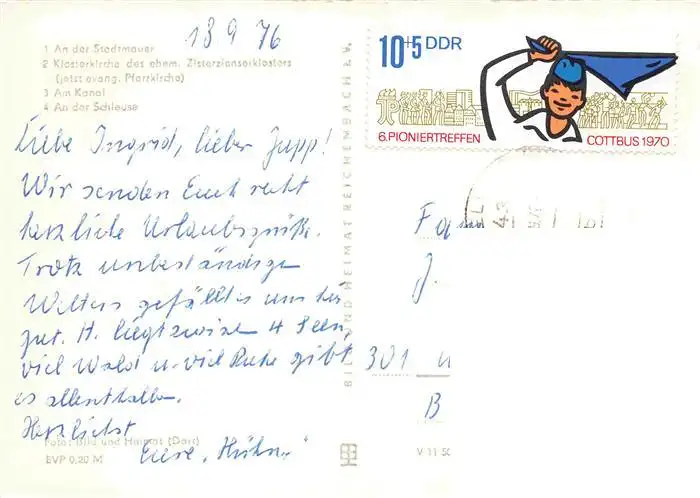 13 9 76
1 An der Stadtmauer
2 Klosterkirche des ehem. Zisterzienserklosters
(jetzt evang. Pfarrkirche)
3 Am Kanal
4 An der Schleuse
Liebe Ingrid, lieber Jupp!
Wir senden Euch recht
herzliche Urlaubsgrüße.
Trotz unbeständigen
Wetters gefällt es uns hier
gut. H. liegt zwischen 4 Seen,
viel Wald u. viel Ruhe gibt
es allenthalben.
Herzlichst
Eure „Hühn
Foto: Bild und Heimat (Darr)
EVP 0,20 M
BILD UND HEIMAT REICHENBACH i. V.
10+5 DDR
6.PIONIERTREFFEN COTTBUS 1970
Fam
J.
301
B
V 11 50